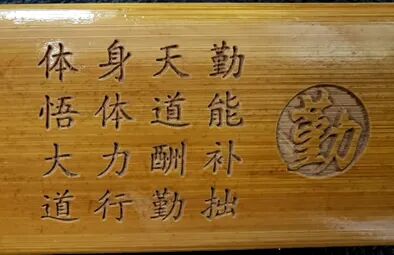 勤
勤能补拙
天道酬勤
身体力行
体悟大道